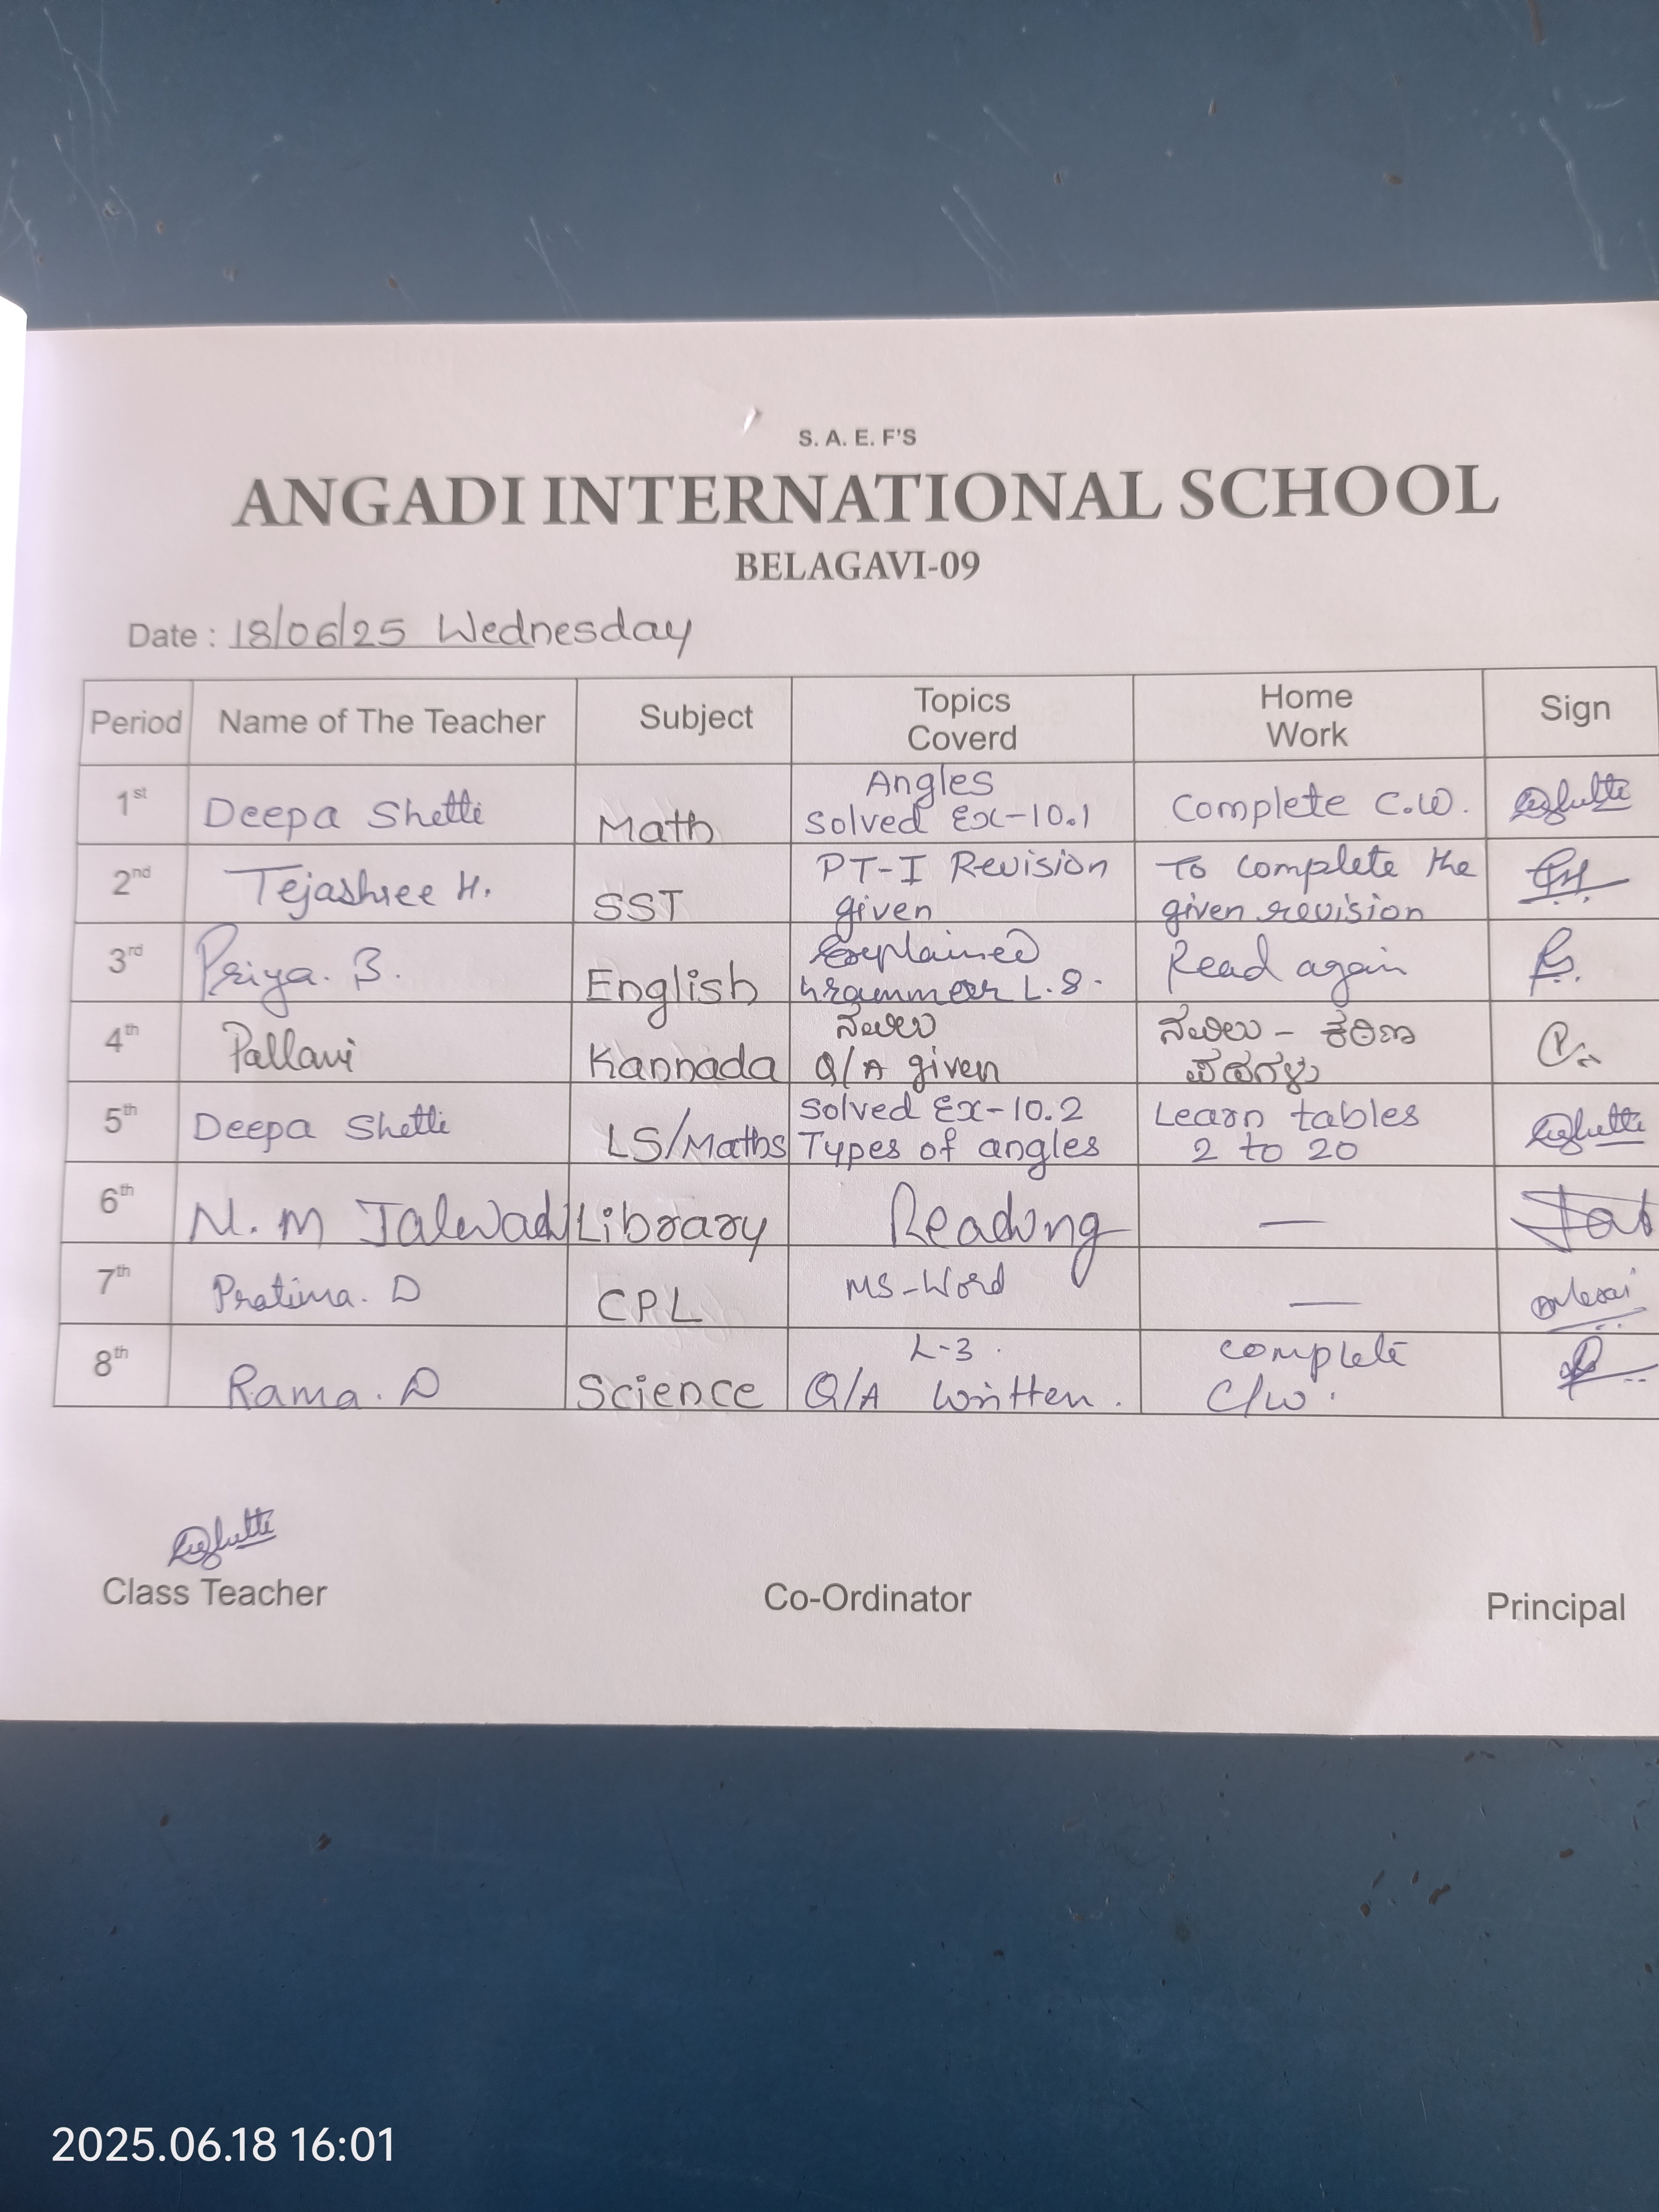 S. A. E. F'S
ANGADI INTERNATIONAL SCHOOL
BELAGAVI-09
Date : 18/06/25 Wednesday
Period Name of The Teacher Subject Topics Coverd Home Work Sign
1st Deepa Shetti Math Angles Solved Ex-10.1 Complete C.W.
2nd Tejashree H. SST PT-I Revision given To complete the given revision
3rd Priya. B. English Explained Grammear L.8. Read again
4th Pallavi Kannada ನವಿಲು Q/A given ನವಿಲು - ಕಠಿಣ ಪದಗಳು
5th Deepa Shetti LS/Maths Solved Ex-10.2 Types of angles Learn tables 2 to 20
6th N. M Jalwadi Library Reading —
7th Pratima. D CPL MS-Word —
8th Rama. D Science L-3. Q/A written. complete C/W.
Class Teacher Co-Ordinator Principal
2025.06.18 16:01